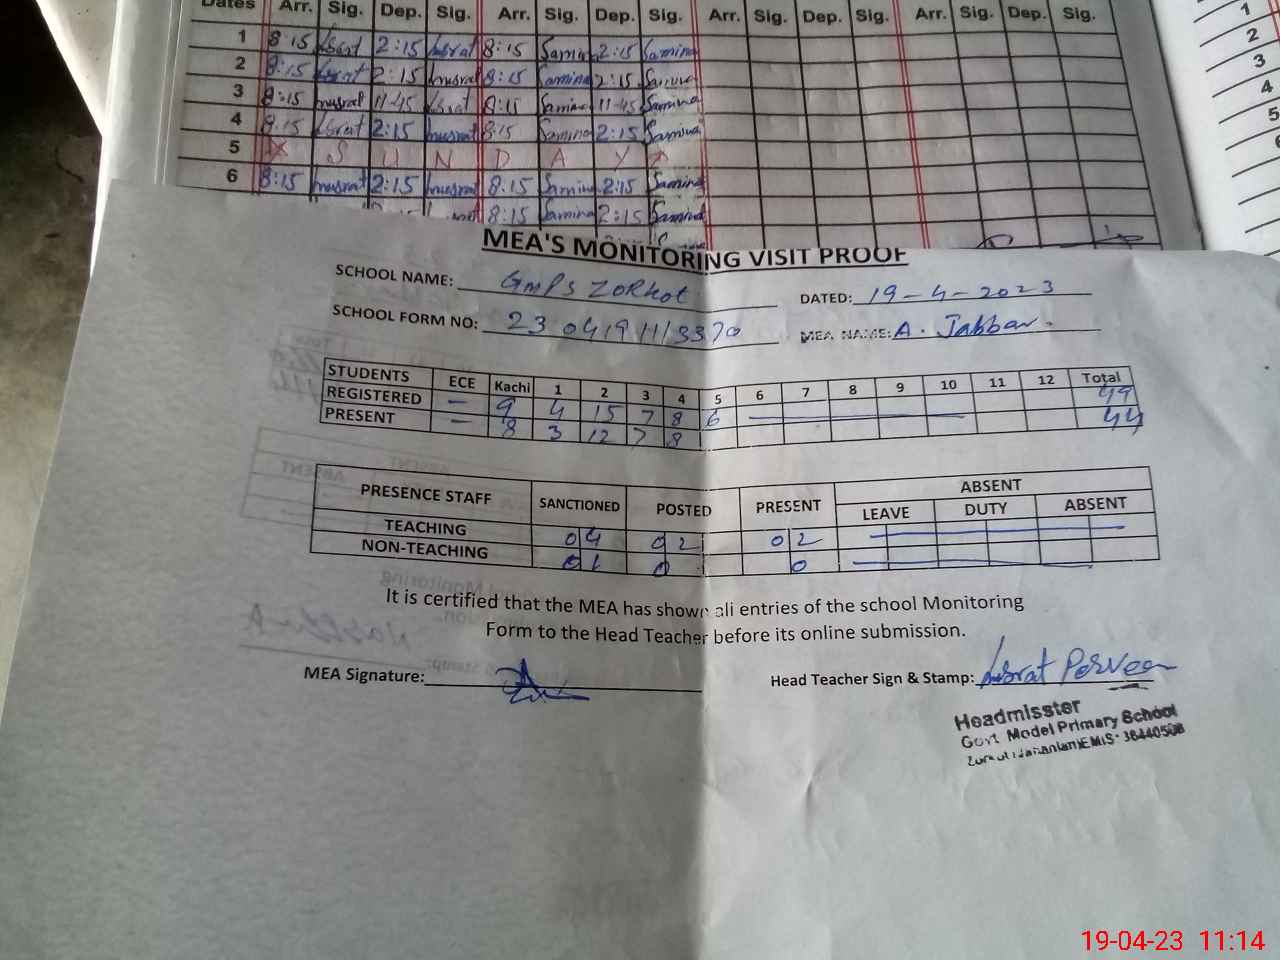 Dates Arr. Sig. Dep. Sig. Arr. Sig. Dep. Sig. Arr. Sig. Dep. Sig. Arr. Sig. Dep. Sig.
1 8:15 2:15 nusrat 8:15 Samina 2:15 Samina
2 8:15 2:15 nusrat 8:15 Samina 2:15 Samina
3 8:15 nusrat 11-45 8:15 Samina 11-45 Samina
4 8:15 2:15 nusrat 8:15 Samina 2:15 Samina
5 S U N D A Y
6 8:15 nusrat 2:15 nusrat 8:15 Samina 2:15 Samina
8:15 Samina 2:15 Samina
1
2
3
4
5
MEA'S MONITORING VISIT PROOF
SCHOOL NAME: GMPS ZORkot DATED: 19-4-2023
SCHOOL FORM NO: 23 0419 11/3370 MEA NAME: A. Jabbar.
STUDENTS ECE Kachi 1 2 3 4 5 6 7 8 9 10 11 12 Total
REGISTERED — 9 4 15 7 8 6 49
PRESENT — 8 3 12 7 8 44
PRESENCE STAFF SANCTIONED POSTED PRESENT ABSENT
LEAVE DUTY ABSENT
TEACHING 04 02 02
NON-TEACHING 01 0 0
It is certified that the MEA has shown all entries of the school Monitoring
Form to the Head Teacher before its online submission.
MEA Signature: Head Teacher Sign & Stamp: nusrat Perveen
Headmisster
Govt Model Primary School
EMIS: 36440508
19-04-23 11:14